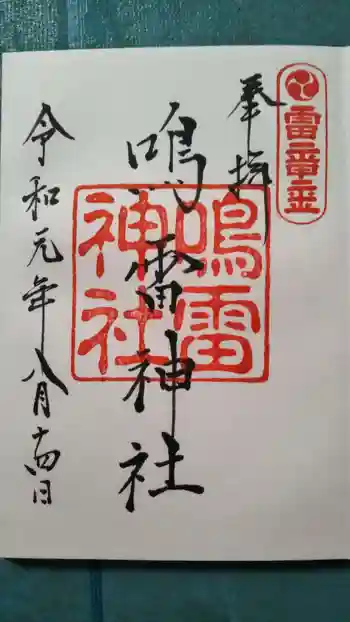 奉拝
鳴雷神社
令和元年八月十四日
鳴雷
神社